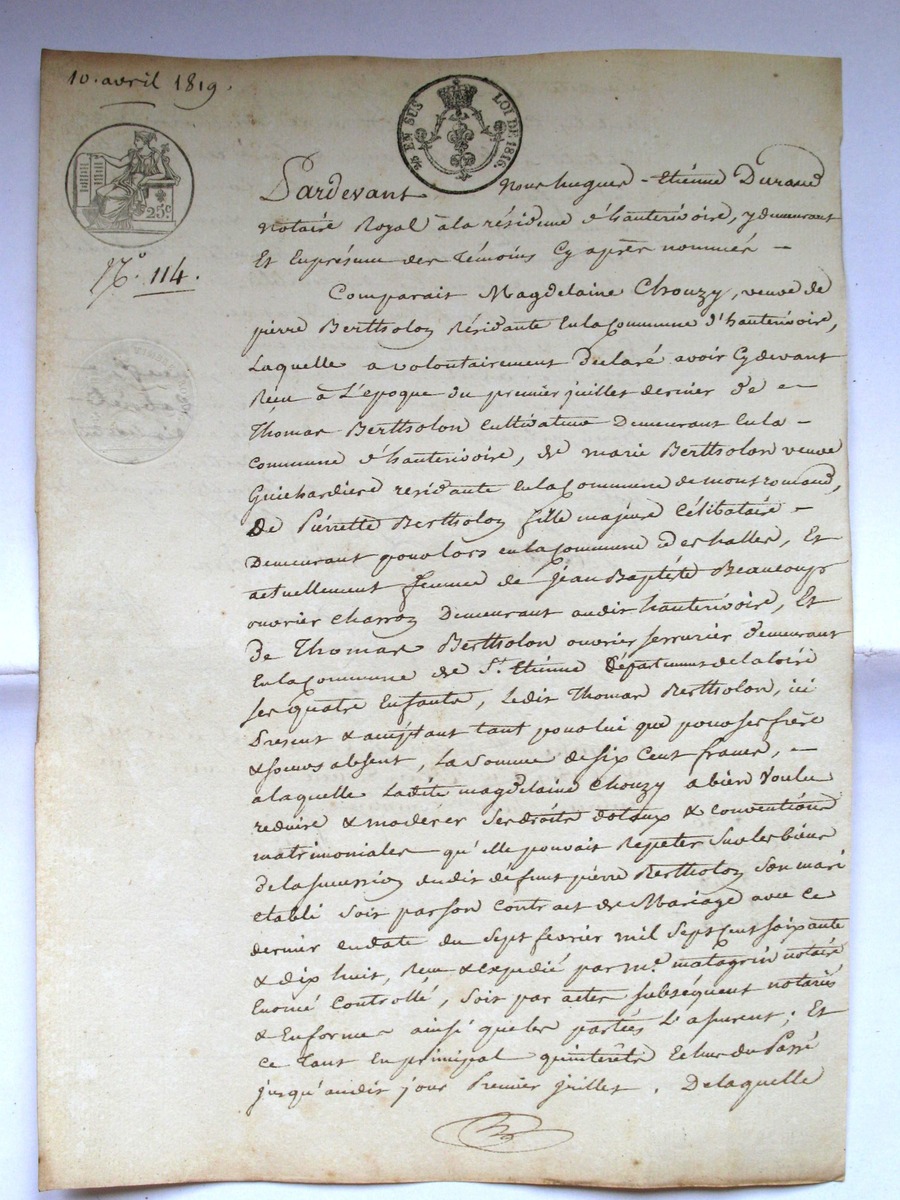 10. avril 1819.
⅒ EN SUS LOI DE 1816.
25c
N.o 114.
Pardevant Nous hugues-Etiénne Durand
Notaire Royal à la résidence d'hauterivoire, y demeurant
Et En présence des témoins Cy après nommés -
Comparait Magdelaine Chouzy, veuve de
pierre Bertholon Résidante En la Commune d'hauterivoire,
Laquelle a volontairement déclaré avoir Cy devant
Reçu à L'époque du premier juillet dernier de -
Thomas Bertholon Cultivateur Demeurant En la -
Commune d'hauterivoire, de marie Bertholon veuve
Guichardiere residante En la Commune de montromand,
De Piérrette Bertholon fille majeure Célibataire -
Demeurant pour lors en la Commune des halles, Et
actuellement femme de Jean Baptiste Beaucoup
ouvrier charron Demeurant audit hauterivoire, Et
de Thomas Bertholon ouvrier serrurier demeurant
En la Commune de St. Etiénne Département de la loire
ses quatre Enfants, Ledit Thomas Bertholon, ici
Présent & acceptant tant pour lui que pour ses frère
& soeurs absent, La Somme de Six Cent francs, -
a laquelle Ladite magdelaine Chouzy a bien Voulu
reduire & modérer ses droits dotaux & conventions
matrimoniales qu'elle pouvait Répéter Sur les biens
de la succession dudit defunt pierre Bertholon Son mari
etabli Soit par son Contract de Mariage avec ce
dernier en date du Sept fevrier mil Sept Cent Soixante
& dix huit, Reçu & expédié par me. matagrin notaire
Enomé Controllé, soit par actes subséquent notariés
& En forme ainsi que les parties L'assurent; Et
ce tant En principal qu'intérêts Echus du Passé
jusqu'audit jour Premier juillet. De laquelle